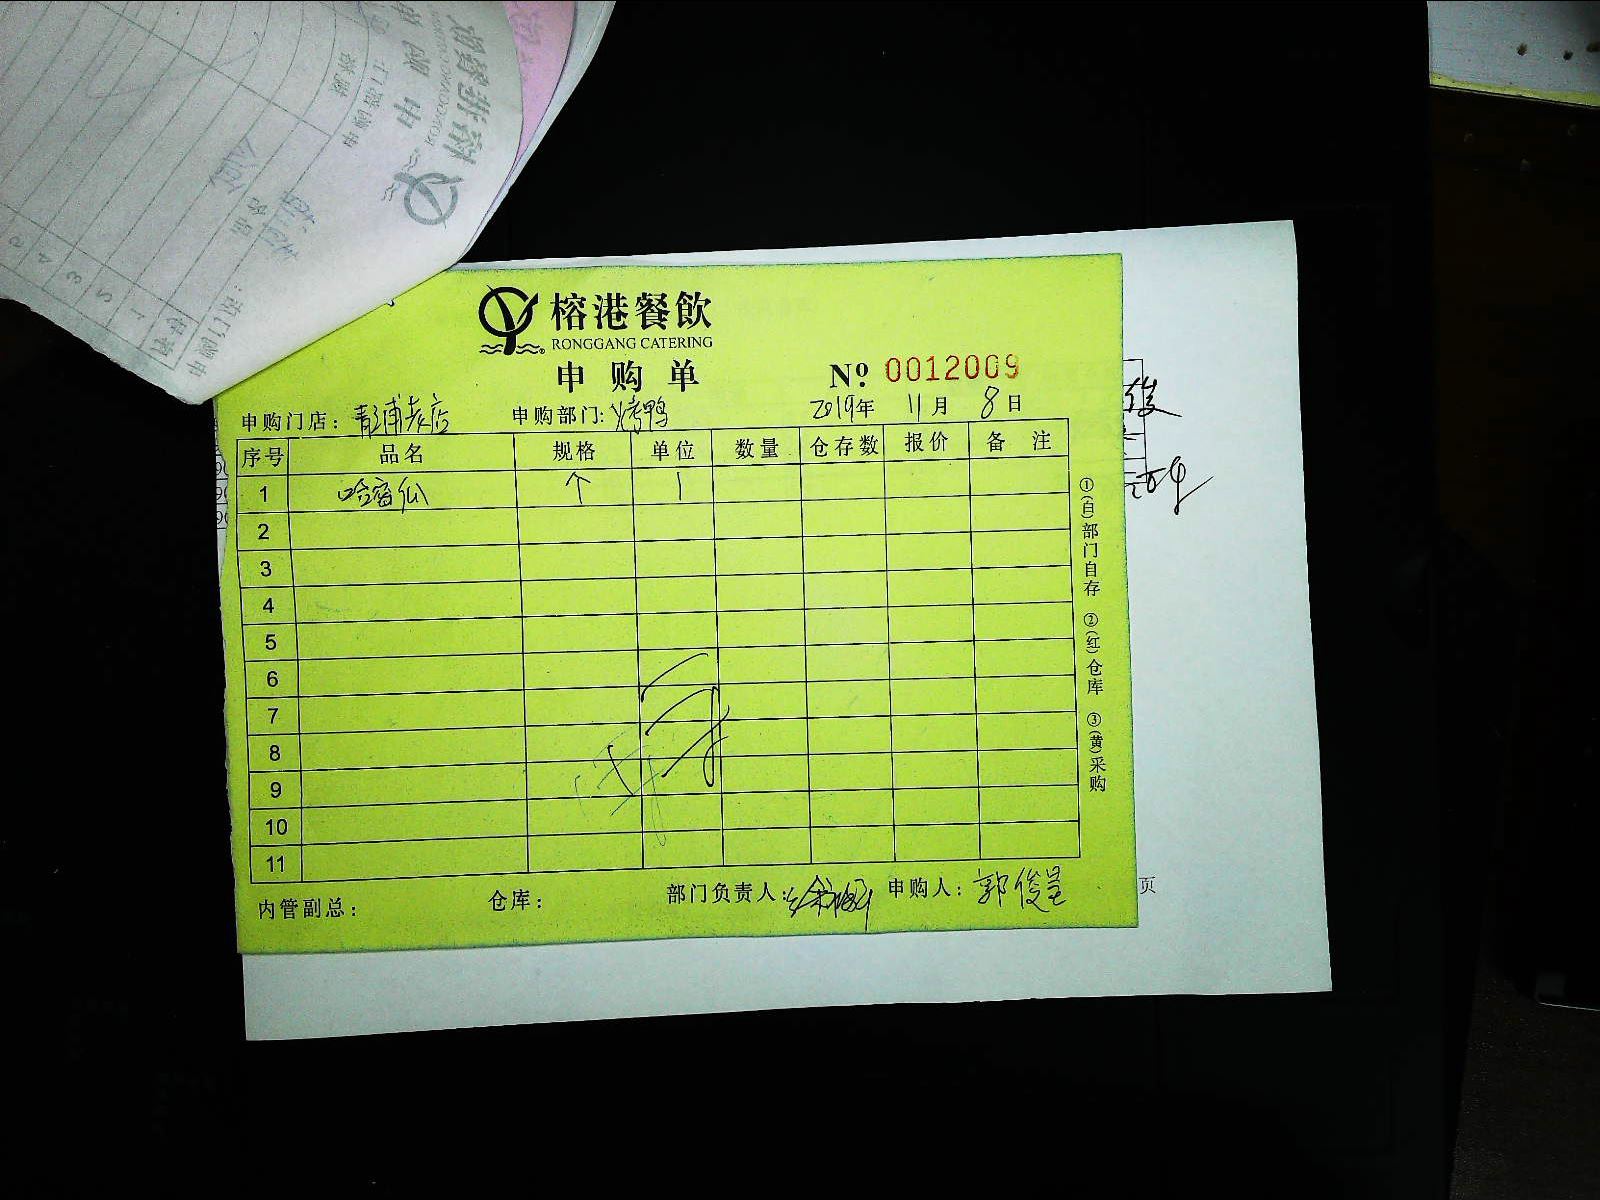 榕港餐飲
RONGGANG CATERING
申购单
№ 0012009
申购门店：青浦老店 申购部门：烤鸭 2019年 11月 8日
序号 品名 规格 单位 数量 仓存数 报价 备注
1 哈密瓜 个 1
2
3
4
5
6
7
8
9
10
11
①(白)部门自存 ②(红)仓库 ③(黄)采购
内管副总： 仓库： 部门负责人： 申购人：郭俊呈
页